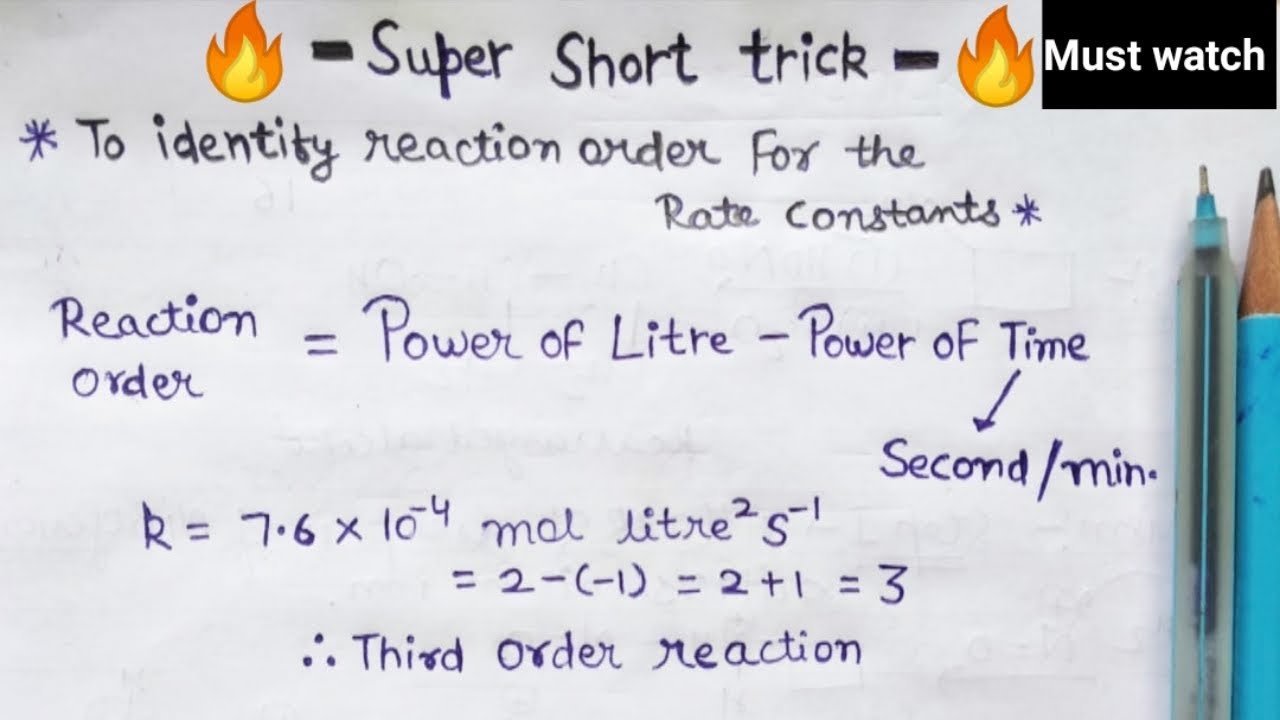 🔥 - Super Short trick - 🔥 Must watch
* To identity reaction order For the
Rate constants *
Reaction order = Power of Litre - Power of Time
Second/min.
k = 7.6 × 10⁻⁴ mol litre² s⁻¹
= 2-(-1) = 2+1 = 3
∴ Third order reaction